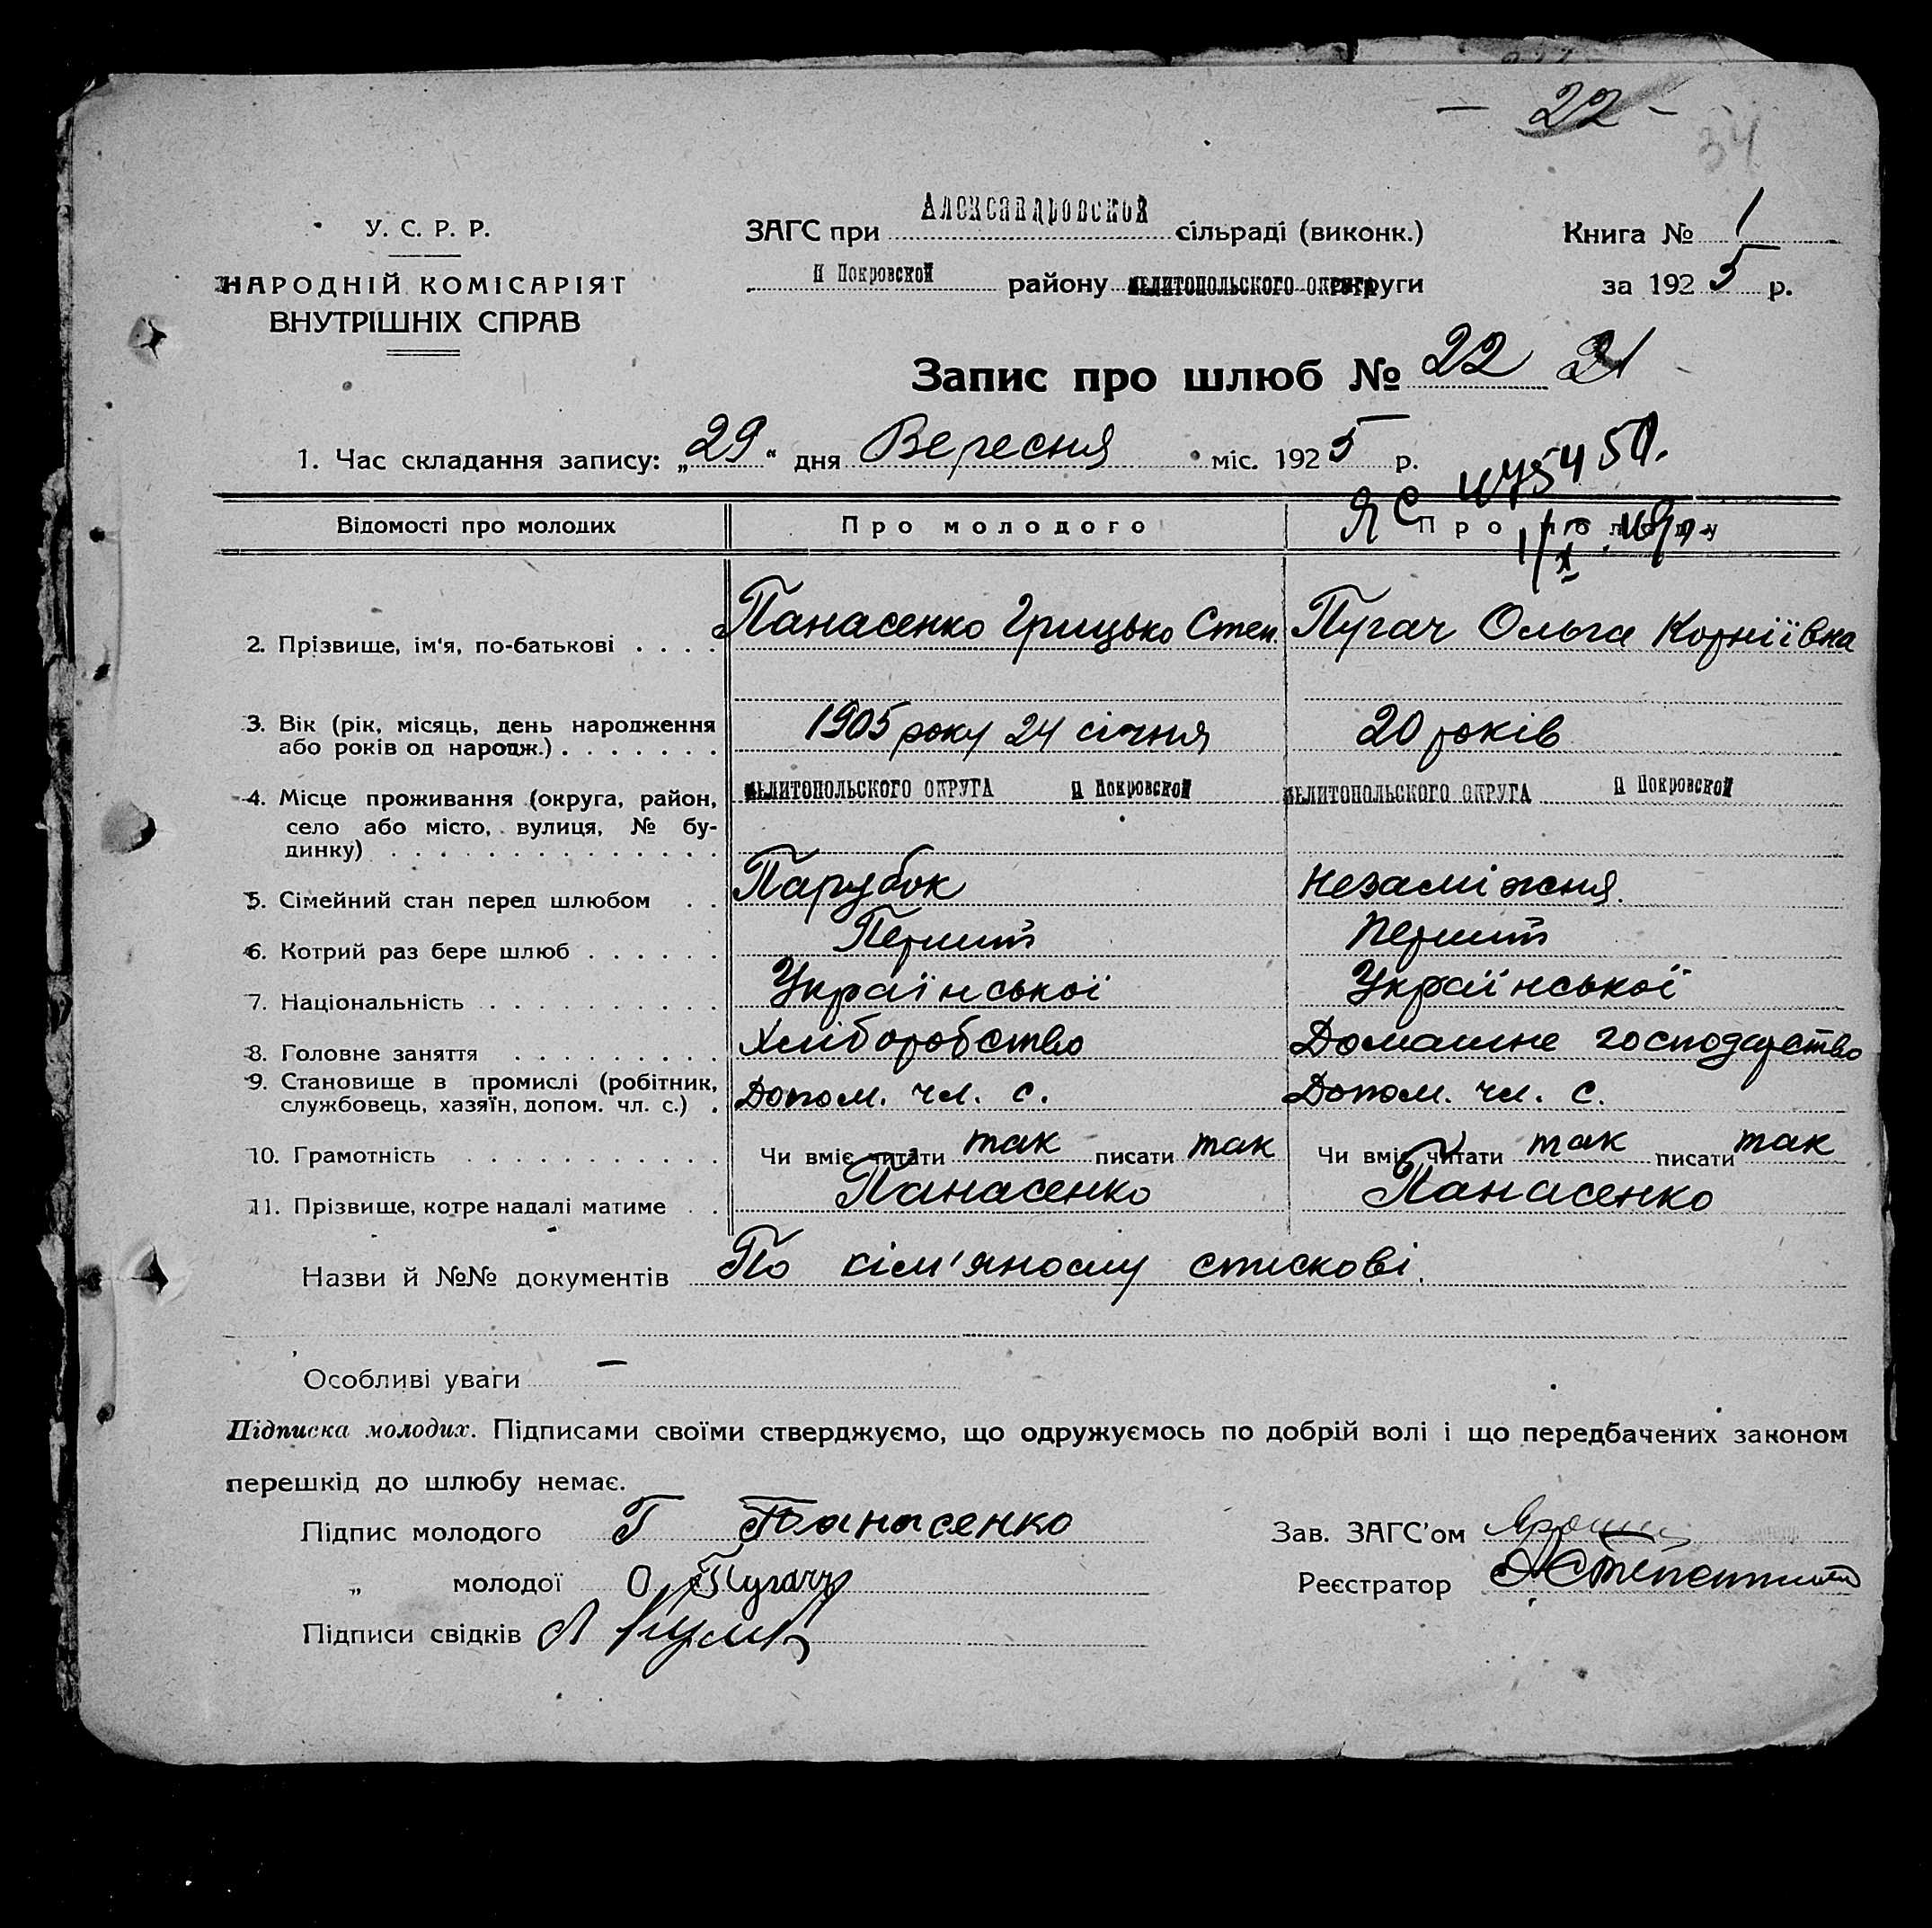 - 22 -
34
У. С. Р. Р.
НАРОДНІЙ КОМІСАРІЯТ
ВНУТРІШНІХ СПРАВ
ЗАГС при Александровской сільраді (виконк.)
П Покровской району МЕЛИТОПОЛЬСКОГО ОКРУГА округи
Книга № 1
за 1925 р.
Запис про шлюб № 22 21
1. Час складання запису: „29“ дня Вересня міс. 1925 р.
ЯС 475450.
Відомості про молодих Про молодого Про молоду
2. Прізвище, ім'я, по-батькові . . . . Панасенко Грицько Степ. Пугач Ольга Корніївна
3. Вік (рік, місяць, день народження
або років од народж.) . . . . . . . 1905 року 24 січня 20 років
4. Місце проживання (округа, район, МЕЛИТОПОЛЬСКОГО ОКРУГА П Покровской МЕЛИТОПОЛЬСКОГО ОКРУГА П Покровской
село або місто, вулиця, № бу-
динку) . . . . . . . . . . . . . .
5. Сімейний стан перед шлюбом . . Парубок Незаміжня.
6. Котрий раз бере шлюб . . . . . . Перший Перший
7. Національність . . . . . . . . . . Української Української
8. Головне заняття . . . . . . . . . Хліборобство Домашне господарство
9. Становище в промислі (робітник,
службовець, хазяїн, допом. чл. с.) . Допом. чл. с. Допом. чл. с.
10. Грамотність . . . . . . . . . . . Чи вміє читати так писати так Чи вміє читати так писати так
11. Прізвище, котре надалі матиме . . Панасенко Панасенко
Назви й №№ документів По сім'яному спискові.
Особливі уваги —
Підписка молодих. Підписами своїми стверджуємо, що одружуємось по добрій волі і що передбачених законом
перешкід до шлюбу немає.
Підпис молодого Г Панасенко
„ молодої О Пугач
Підписи свідків
Зав. ЗАГС'ом
Реєстратор